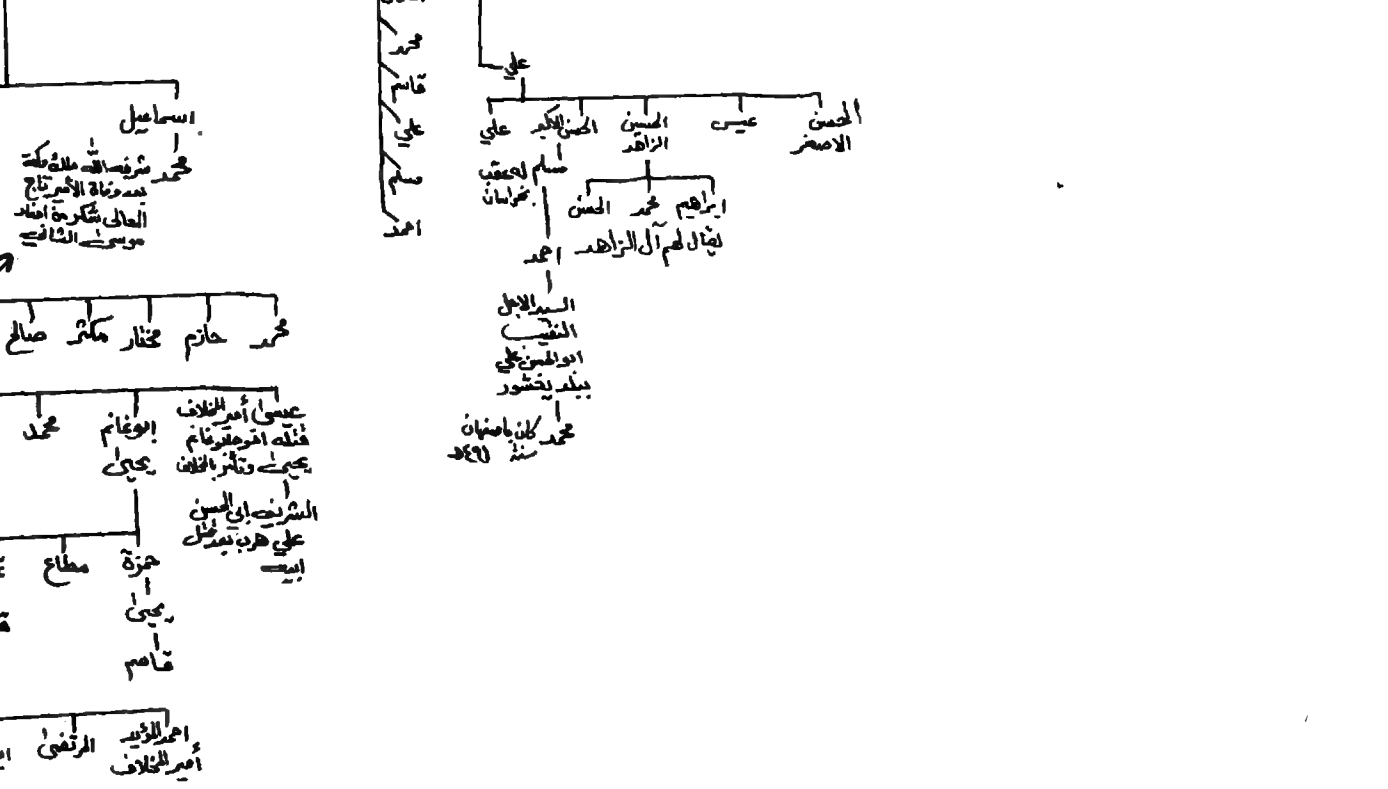 محمد
قاسم
علي
مسلم
احمد
علي
الحسن
الاصغر
عيسى
الحسين
الزاهد
الحسن الاكبر
علي
ابراهيم
محمد
الحسن
يقال لهم آل الزاهد
مسلم له عقب
بخراسان
احمد
السيد الاجل
النقيب
ابو الحسن علي
ببلد بخشور
محمد كان باصفهان
سنة ٤٩١هـ
اسماعيل
محمد شرفه الله ملك مكة
بعد وفاة الأمير تاج
المعالي شكر مة احفاد
موسى الثاني
محمد
حازم
مختار
مكثر
صالح
عيسى أمير المخلاف
قتله اخوه ابو غانم
يحيى وتأثر بالمخلاف
الشريف ابي الحسن
علي هرب بعد قتل
ابيه
ابو غانم
يحيى
محمد
حمزة
مطاع
يحيى
قاسم
احمد المؤيد
أمير المخلاف
المرتضى